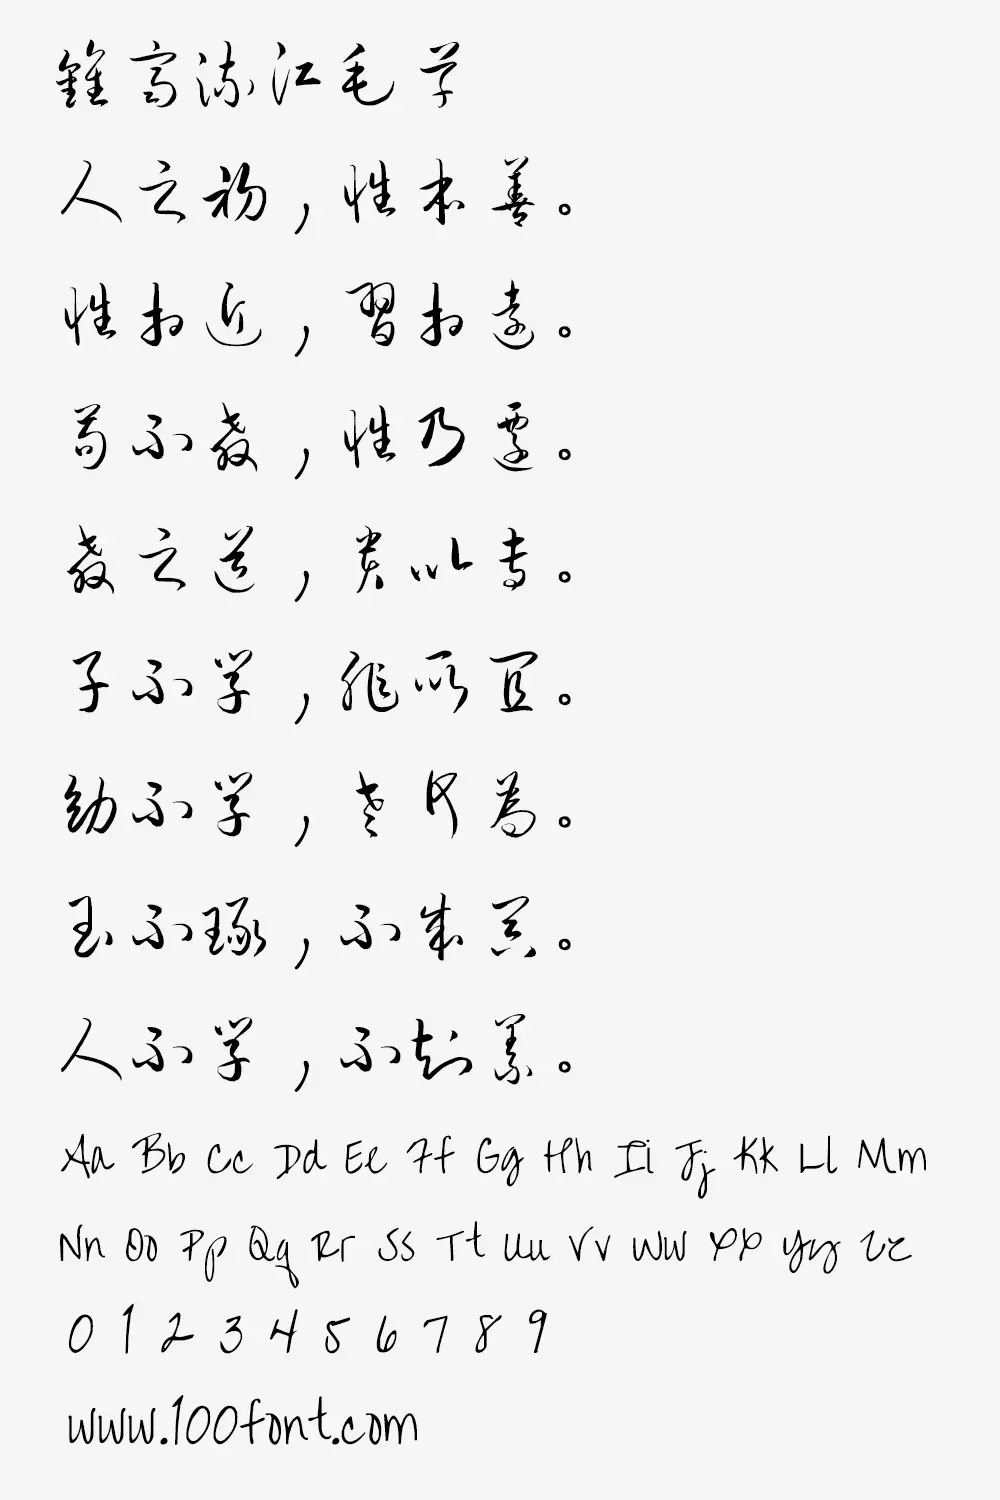 鍾齊流江毛草
人之初，性本善。
性相近，習相遠。
苟不教，性乃遷。
教之道，贵以专。
子不学，非所宜。
幼不学，老何為。
玉不琢，不成器。
人不学，不知義。
Aa Bb Cc Dd Ee Ff Gg Hh Ii Jj Kk Ll Mm
Nn Oo Pp Qq Rr Ss Tt Uu Vv Ww Xx Yy Zz
0 1 2 3 4 5 6 7 8 9
www.100font.com